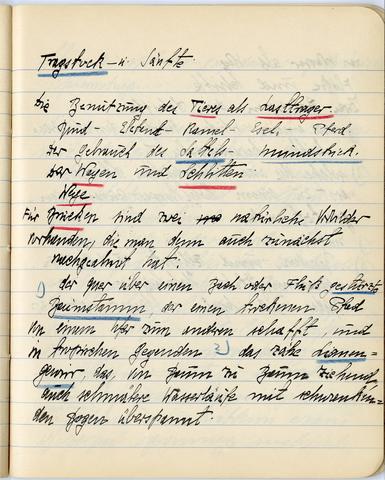 Tragstock - u. Sänfte.
Die Benutzung des Tieres als Lastträger
Hund - Elefant - Kamel - Esel - Pferd.
Der Gebrauch des Sattels - Mundstück.
Der Wagen und Schlitten.
Wege.
Für Brücken sind zwei natürliche Vorbilder
vorhanden, die man denn auch zunächst
nachgeahmt hat:
1) der quer über einen Bach oder Fluß gestürzte
Baumstamm, der einen trockenen Pfad
von einem Ufer zum anderen schafft, und
in tropischen Gegenden 2) das zähe Lianen-
gewirr, das, von Baum zu Baum ziehend,
auch schmälere Wasserläufe mit schwanken-
den Bogen überspannt.